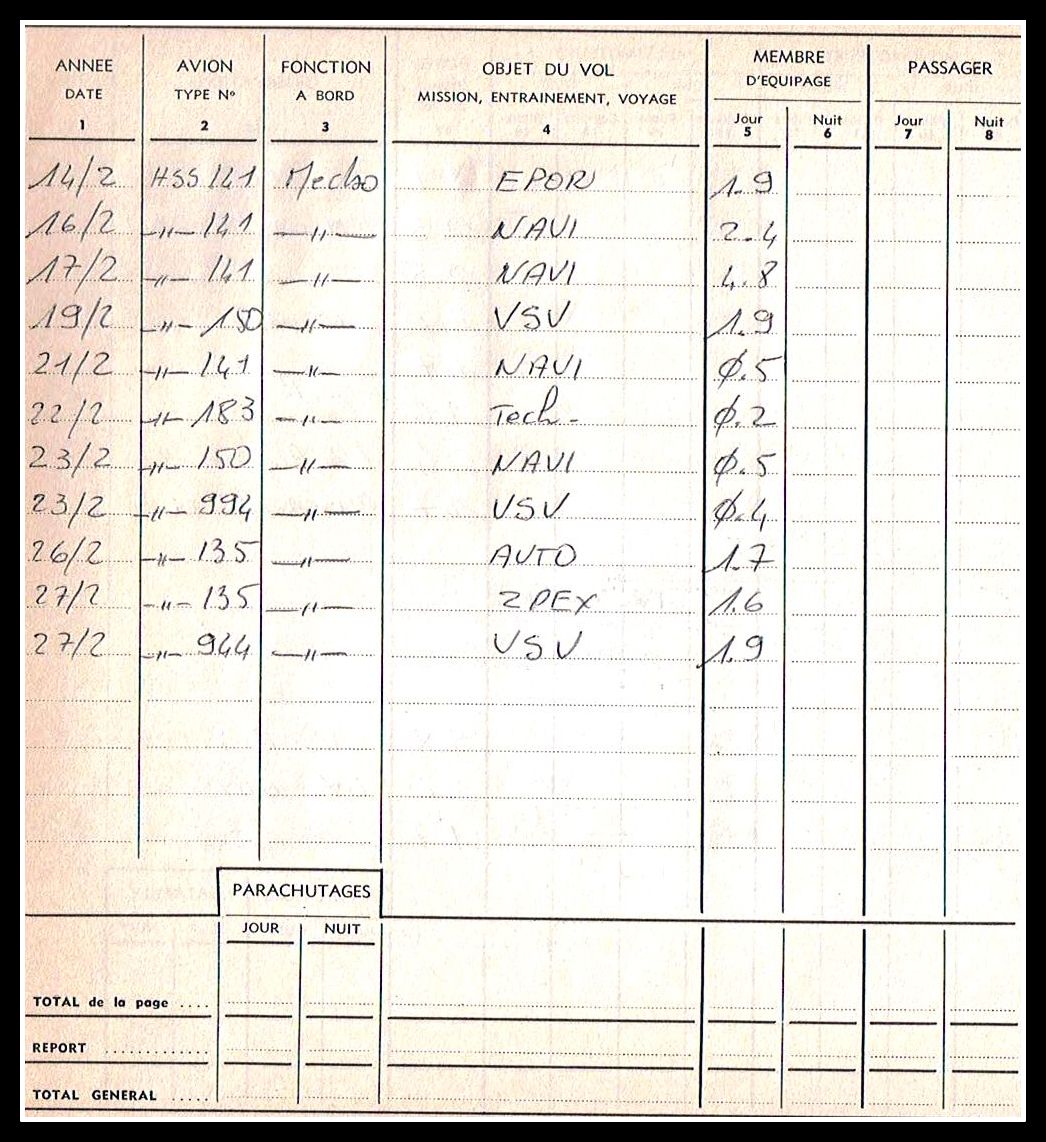 ANNEE AVION FONCTION OBJET DU VOL MEMBRE PASSAGER
DATE TYPE Nº A BORD MISSION, ENTRAINEMENT, VOYAGE D'EQUIPAGE
Jour Nuit Jour Nuit
1 2 3 4 5 6 7 8
14/2 HSS 141 Mecbo 1.9
16/2 -〃- 141 -〃- NAVI 2.4
17/2 -〃- 141 -〃- NAVI 4.8
19/2 -〃- 150 -〃- VSV 1.9
21/2 -〃- 141 -〃- NAVI Ø.5
22/2 -〃- 183 -〃- Tech- Ø.2
23/2 -〃- 150 -〃- NAVI Ø.5
23/2 -〃- 994 -〃- VSV Ø.4
26/2 -〃- 135 -〃- AUTO 1.7
27/2 -〃- 135 -〃- 2PEX 1.6
27/2 -〃- 944 -〃- VSV 1.9
PARACHUTAGES
JOUR NUIT
TOTAL de la page ....
REPORT ............
TOTAL GENERAL .....